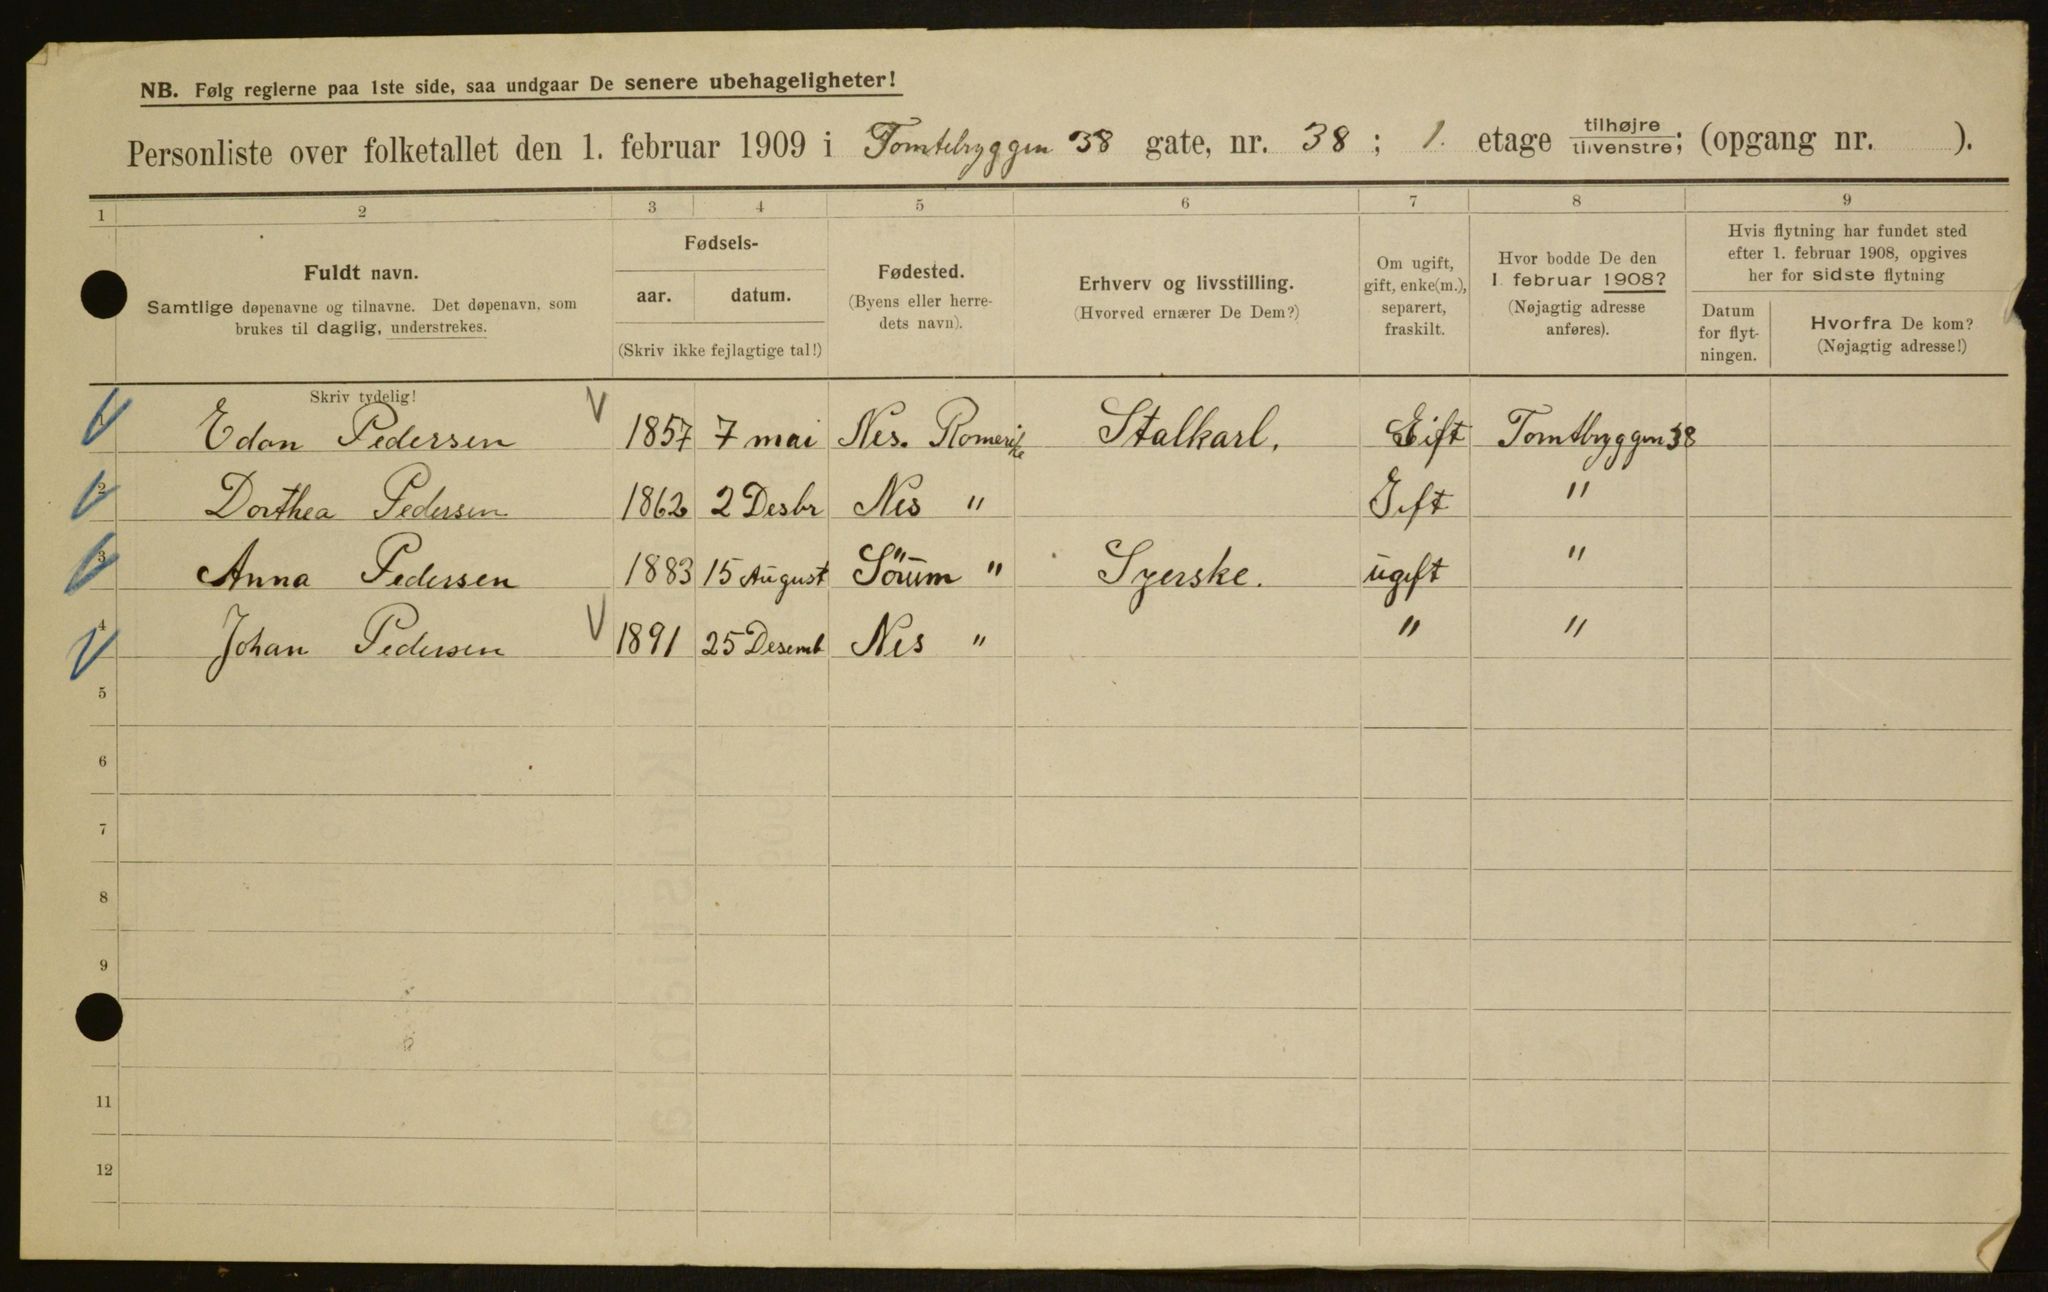 NB. Følg reglerne paa 1ste side, saa undgaar De senere ubehageligheter!
Personliste over folketallet den 1. februar 1909 i Tomtebryggen 38 gate, nr. 38 ; 1. etage tilhøjre tilvenstre; (opgang nr. ).
1 2 3 4 5 6 7 8 9
Fuldt navn.
Samtlige døpenavne og tilnavne. Det døpenavn, som
brukes til daglig, understrekes.
Skriv tydelig!
Fødsels-
aar. datum.
(Skriv ikke fejlagtige tal!)
Fødested.
(Byens eller herre-
dets navn).
Erhverv og livsstilling.
(Hvorved ernærer De Dem?)
Om ugift,
gift, enke(m.),
separert,
fraskilt.
Hvor bodde De den
1. februar 1908?
(Nøjagtig adresse
anføres).
Hvis flytning har fundet sted
efter 1. februar 1908, opgives
her for sidste flytning
Datum
for flyt-
ningen.
Hvorfra De kom?
(Nøjagtig adresse!)
Edan Pedersen 1857 7 mai Nes. Romerike Stalkarl. Gift Tomtbryggen 38
2 Dorthea Pedersen 1862 2 Desbr Nes " Gift "
3 Anna Pedersen 1883 15 August Sörum " Syerske. ugift "
4 Johan Pedersen 1891 25 Desemb Nes " " "
5
6
7
8
9
11
12